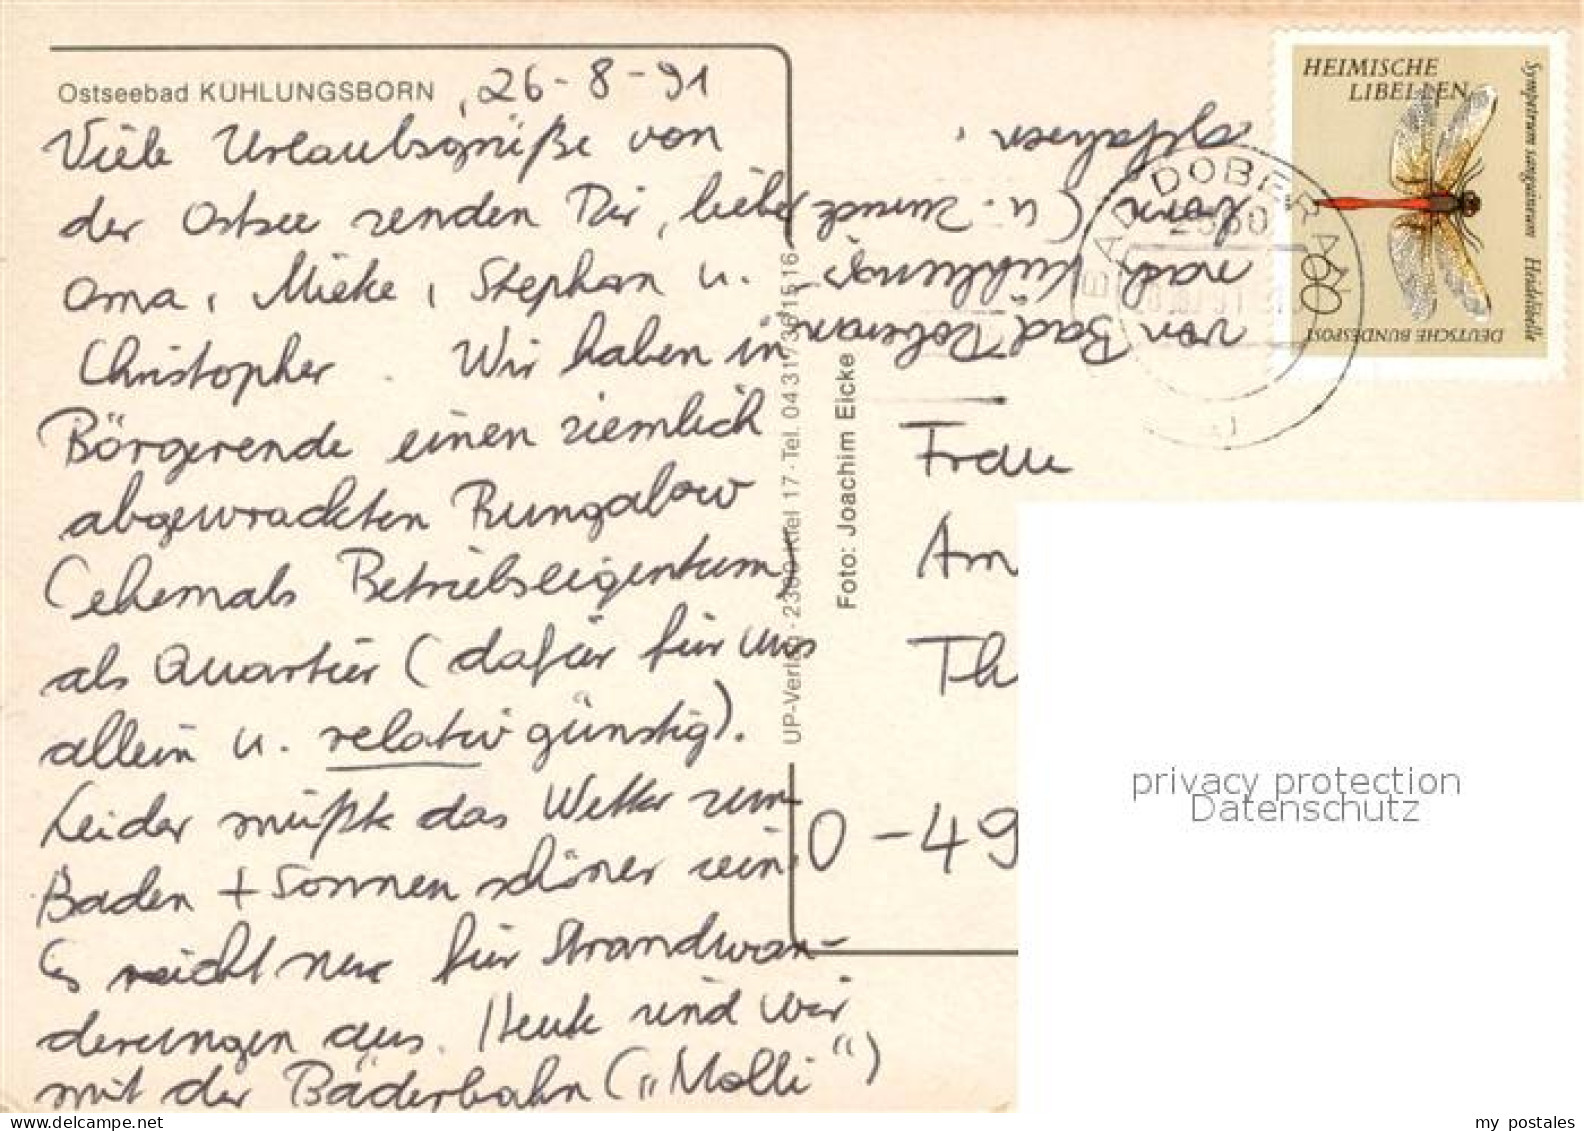 Ostseebad KÜHLUNGSBORN
, 26-8-91
Viele Urlaubsgrüße von
der Ostsee senden Dir, liebe
Oma, Mieke, Stephan u.
Christopher. Wir haben in
Börgerende einen ziemlich
abgewrackten Bungalow
(ehemals Betriebseigentum)
als Quartier (dafür für uns
allein u. relativ günstig).
Leider müßte das Wetter zum
Baden + Sonnen schöner sein.
Es reicht nur für Strandwan-
derungen aus. Heute sind wir
mit der Bäderbahn ("Molli")
von Bad Doberan
nach Kühlungs-
born (u. zurück)
gefahren.
UP-Verlag · 2300 Kiel 17 · Tel. 04 31 / 39 15 16
Foto: Joachim Eicke
HEIMISCHE
LIBELLEN
Sympetrum sanguineum Heidelibelle
DEUTSCHE BUNDESPOST
60
BAD DOBERAN
2560
Frau
Am
Th
O-49
privacy protection
Datenschutz
my postales